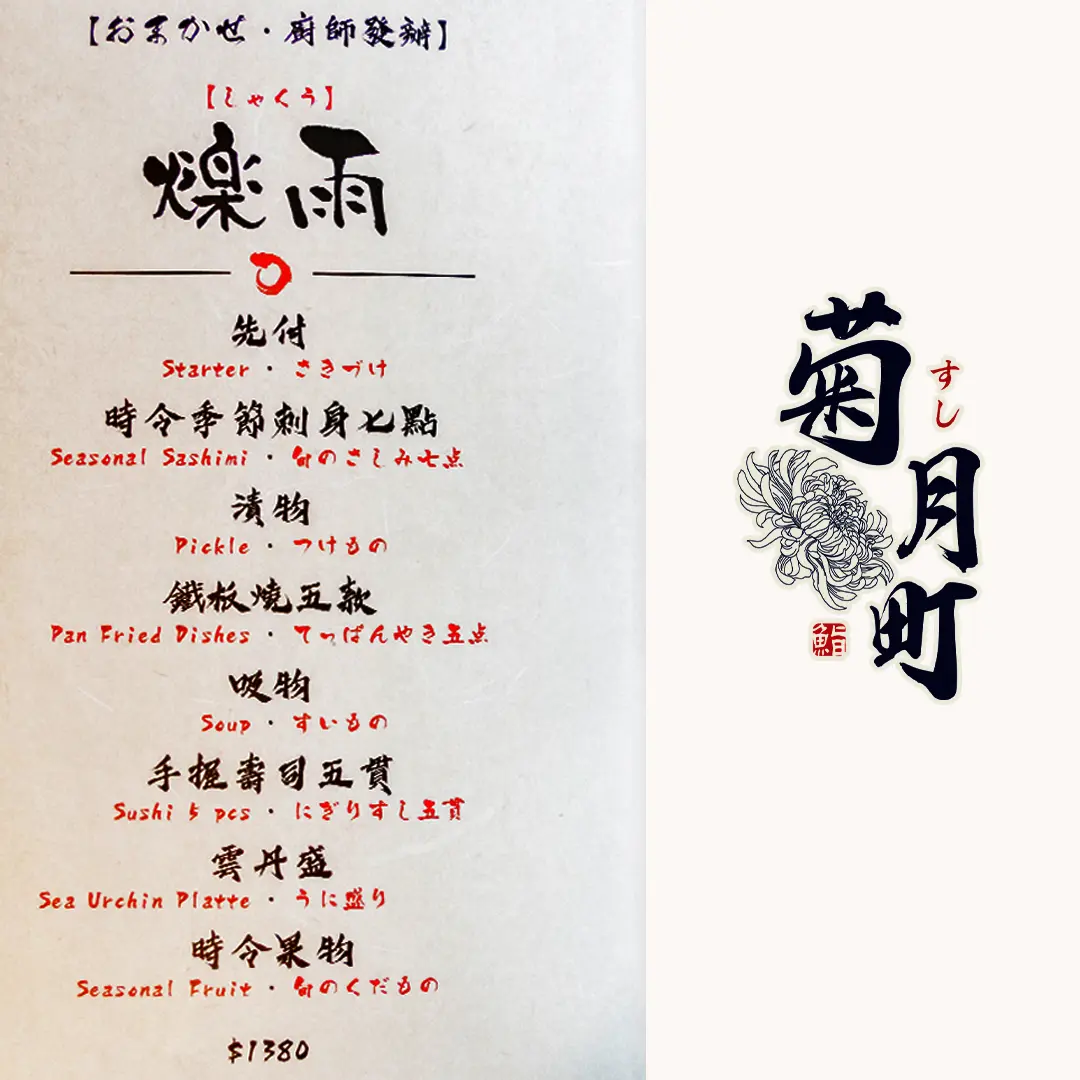 【おまかせ・廚師發辦】
【しゃくう】
爍雨
先付
Starter・さきづけ
時令季節刺身七點
Seasonal Sashimi・旬のさしみ七点
漬物
Pickle・つけもの
鐵板燒五款
Pan Fried Dishes・てっぱんやき五点
吸物
Soup・すいもの
手握壽司五貫
Sushi 5 pcs・にぎりすし五貫
雲丹盛
Sea Urchin Platte・うに盛り
時令果物
Seasonal Fruit・旬のくだもの
$1380
菊月町
すし
鮨